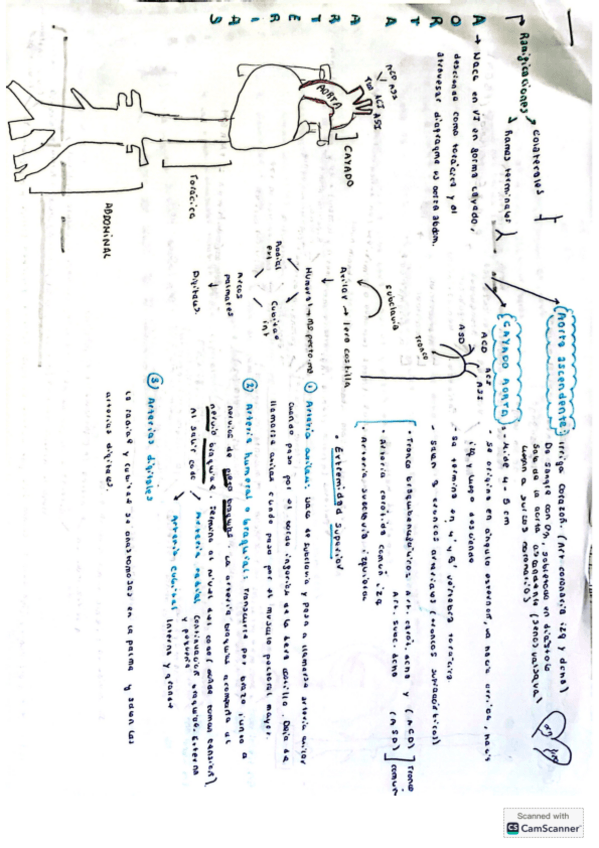 AORTA ARTERIAS
Ramificaciones
colaterales
Ramas terminales
→ Nace en VI en forma cayado,
desciende como torácica y al
atravesar diafragma es aorta abdom.
ACD ACI
ASD ASI
AORTA
CAYADO
Torácica
ABDOMINAL
Aorta ascendente:
irriga corazón. (Art coronaria izq y dcha)
Da sangre con O2,
sale de la aorta ascendente (senos valsalva)
CAYADO AORTA
- Mide 4-5 cm
- Se origina en ángulo esternal, va hacia arriba, hacia
izq y luego desciende
- Se termina en 4ª vértebra torácica.
- Salen 3 troncos arteriales (troncos supraaórticos)
• Tronco braquiocefálico: Art. carót. dcha (ACD)
Art. subc. dcha (ASD)
Tronco común
• Arteria carótida común izq
• Arteria subclavia izquierda
ACD ACI
ASD ASI
Tronco
subclavia
Axilar → 1era costilla
Humeral →
Radial
ext
Cubital
int
Arcos
palmares
Digitales
• Extremidad superior
① Arteria axilar: Nace de subclavia y pasa a llamarse arteria axilar
cuando pasa por el borde inferior de la 1era costilla. Deja de
llamarse axilar cuando pasa por el músculo pectoral mayor.
② Arteria humeral o braquial: transcurre por brazo junto a
nervios de
nervio braquial. Termina al nivel del codo (donde toman tensión)
Al salir codo
Arteria radial (continuación braquial. Externa
y pequeña
Arteria cubital Interna y grande
③ Arterias digitales
La radial y cubital se anastomosan en la palma y salen las
arterias digitales.
Scanned with
CS CamScanner